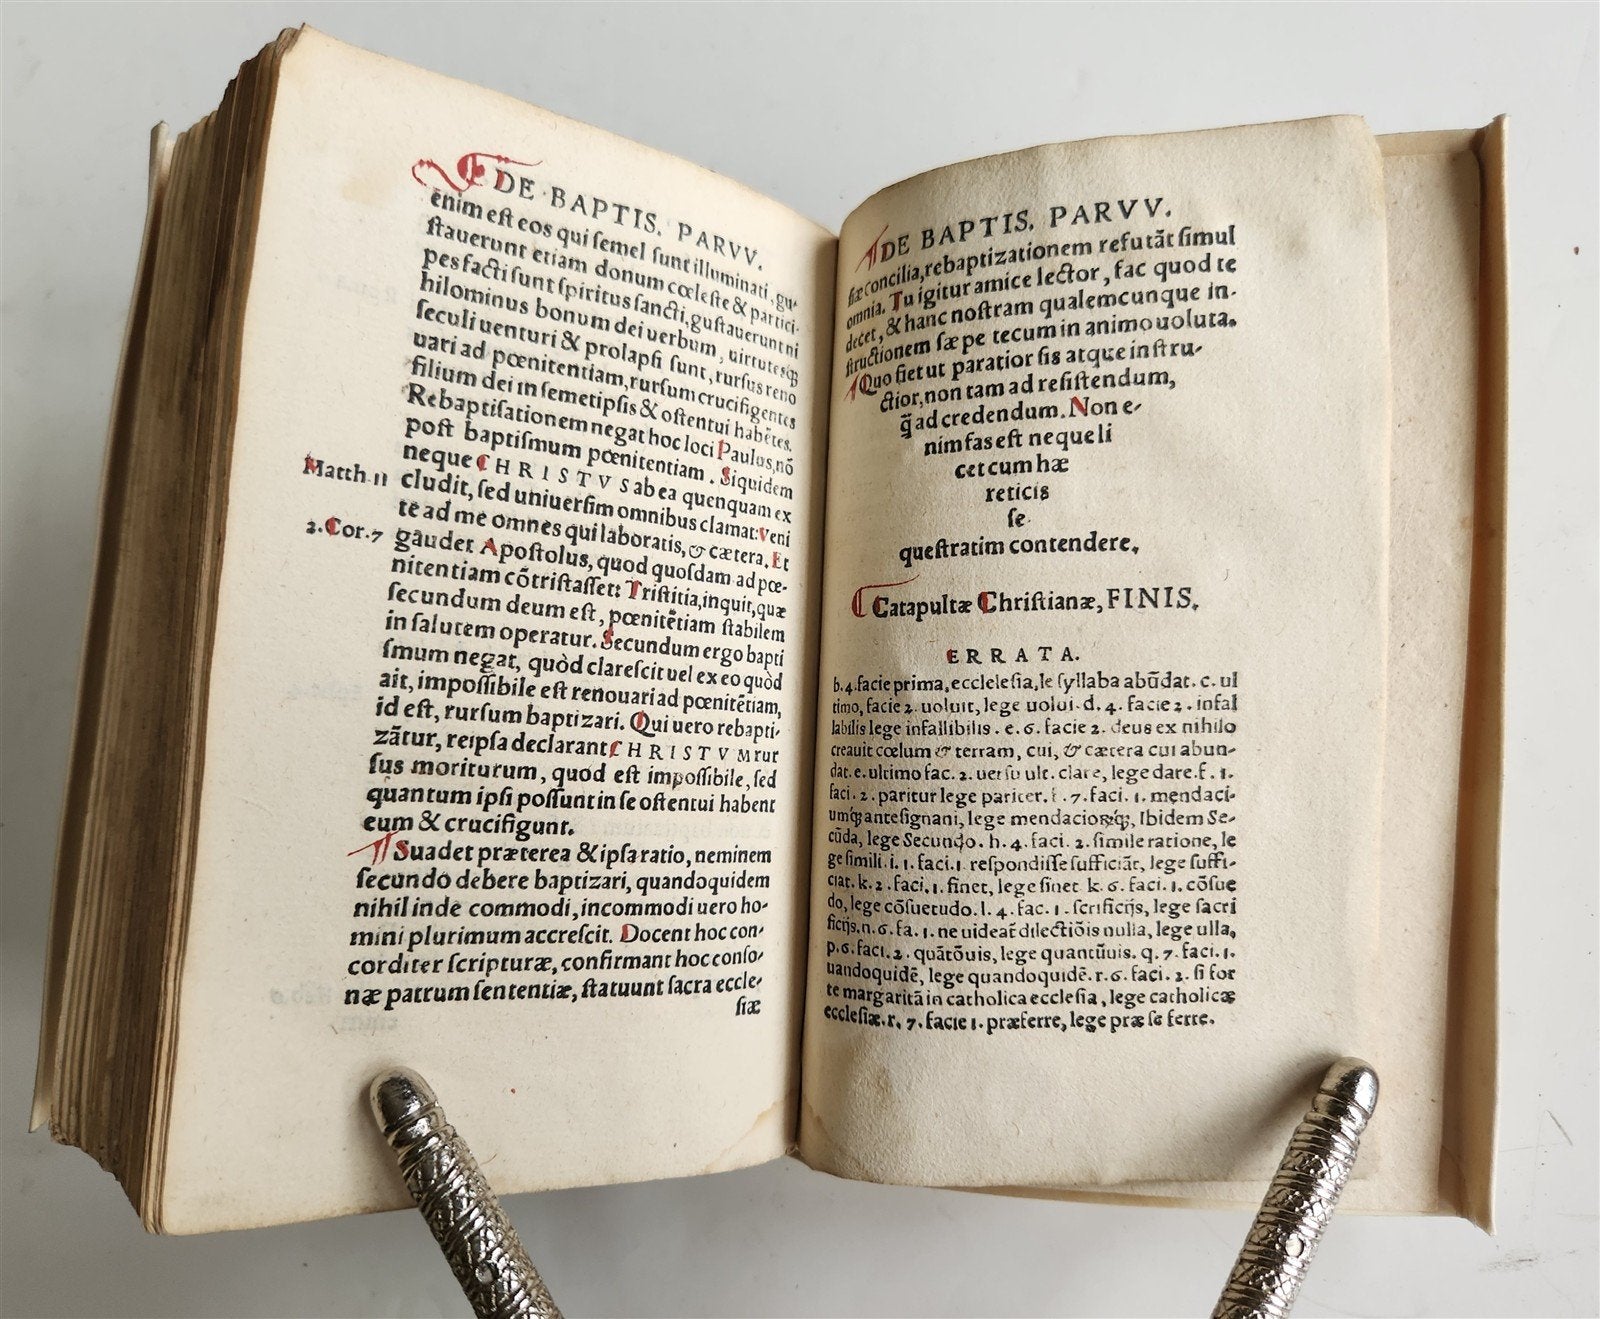 DE BAPTIS. PARVV.
enim eſt eos qui ſemel ſunt illuminati, gu-
ſtauerunt etiam donum cœleſte & partici-
pes facti ſunt ſpiritus ſancti, guſtauerunt ni
hilominus bonum dei uerbum, uirtutesq́ꝫ
ſeculi uenturi & prolapſi ſunt, rurſus reno
uari ad pœnitentiam, rurſum crucifigentes
filium dei in ſemetipſis & oſtentui habẽtes.
Rebaptiſationem negat hoc loci Paulus, nõ
poſt baptiſmum pœnitentiam. Siquidem
neque CHRISTVS ab ea quenquam ex
Matth. 11 cludit, ſed uniuerſim omnibus clamat: Veni
te ad me omnes qui laboratis, & cætera. Et
2. Cor. 7 gãudet Apoſtolus, quod quoſdam ad pœ-
nitentiam cõtriſtaſſet: Triſtitia, inquit, quæ
ſecundum deum eſt, pœnitẽtiam ſtabilem
in ſalutem operatur. Secundum ergo bapti
ſmum negat, quòd clareſcit uel ex eo quòd
ait, impoſſibile eſt renouari ad pœnitẽtiam,
id eſt, rurſum baptizari. Qui uero rebapti-
zãtur, reipſa declarant CHRISTVM rur
ſus moriturum, quod eſt impoſſibile, ſed
quantum ipſi poſſunt in ſe oſtentui habent
eum & crucifigunt.
Suadet præterea & ipſa ratio, neminem
ſecundo debere baptizari, quandoquidem
nihil inde commodi, incommodi uero ho-
mini plurimum accreſcit. Docent hoc con-
corditer ſcripturæ, confirmant hoc conſo-
næ patrum ſententiæ, ſtatuunt ſacra eccle-
ſiæ
DE BAPTIS. PARVV.
ſiæ concilia, rebaptizationem refutãt ſimul
omnia. Tu igitur amice lector, fac quod te
decet, & hanc noſtram qualemcunque in-
ſtructionem ſæpe tecum in animo uoluta.
Quo fiet ut paratior ſis atque inſtru-
ctior, non tam ad reſiſtendum,
q̃ ad credendum. Non e-
nim fas eſt neque li
cet cum hæ
reticis
ſe
queſtratim contendere.
Catapultæ Chriſtianæ, FINIS.
ERRATA.
b. 4. facie prima, eccleleſia, le ſyllaba abũdat. c. ul
timo, facie 2. uoluit, lege uolui. d. 4. facie 2. infal
labilis lege infallibilis. e. 6. facie 2. deus ex nihilo
creauit cœlum & terram, cui, & cætera cui abun-
dat. e. ultimo fac. 2. uerſu ult. clare, lege dare. f. 1.
faci. 2. paritur lege pariter. f. 7. faci. 1. mendaci-
umq́ꝫ anteſignani, lege mendaciorq́ꝫ, Ibidem Se-
cũda, lege Secundo. h. 4. faci. 2. ſimile ratione, le
ge ſimili. i. 1. faci. 1. reſpondiſſe ſufficiãt, lege ſuffi-
ciat. k. 2. faci. 1. finet, lege ſinet k. 6. faci. 1. cõſue
do, lege cõſuetudo. l. 4. fac. 1. ſcrificijs, lege ſacri
ficijs. n. 6. fa. 1. ne uideat dilectiõis nulla, lege ulla,
p. 6. faci. 2. quãtõuis, lege quantũuis. q. 7. faci. 1.
uandoquidẽ, lege quandoquidẽ. r. 6. faci. 2. ſi for
te margaritã in catholica eccleſia, lege catholicæ
eccleſiæ. r. 7. facie 1. præferre, lege præ ſe ferre.